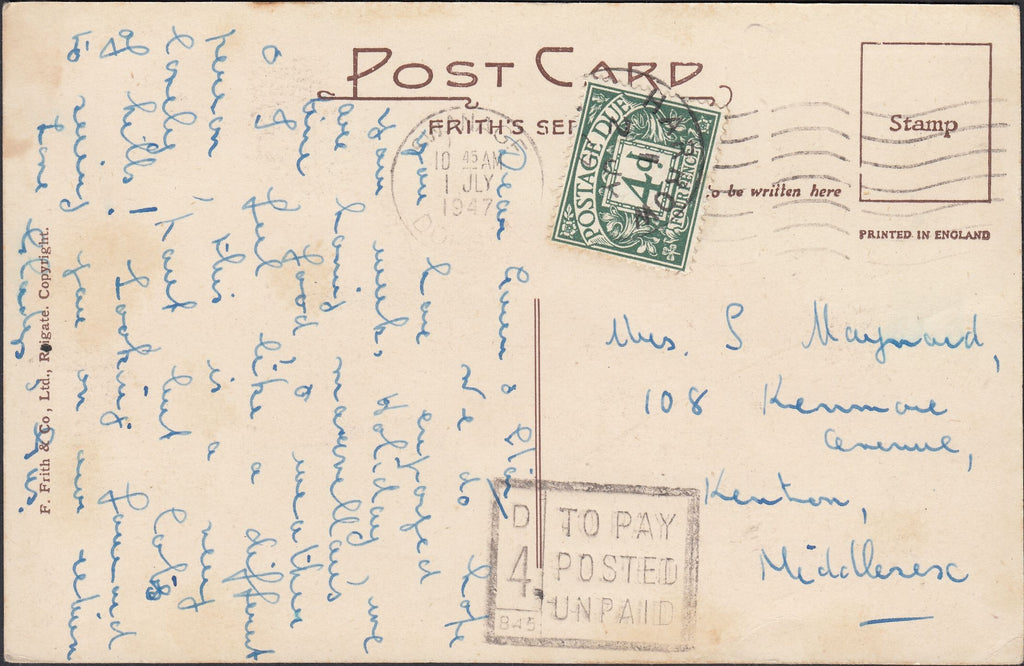 POST CARD
FRITH'S SER
o be written here
Stamp
PRINTED IN ENGLAND
ANAGE
10 45 AM
1 JLY
1947
DO
POSTAGE DUE
4d
FOUR PENCE
Dear Gwen &
We do hope
you have enjoyed
your weeks holiday, we
are having marvellous
time, food & weather
& I feel like a different
person, this is a very
lovely, part but lots
of hills! Looking forward
to seeing you on our return
Love Gladys & Les.
F. Frith & Co., Ltd., Reigate. Copyright.
Mrs. S Maynard,
108 Kenmore
avenue,
Kenton,
Middlesex
D
4
845
TO PAY
POSTED
UNPAID